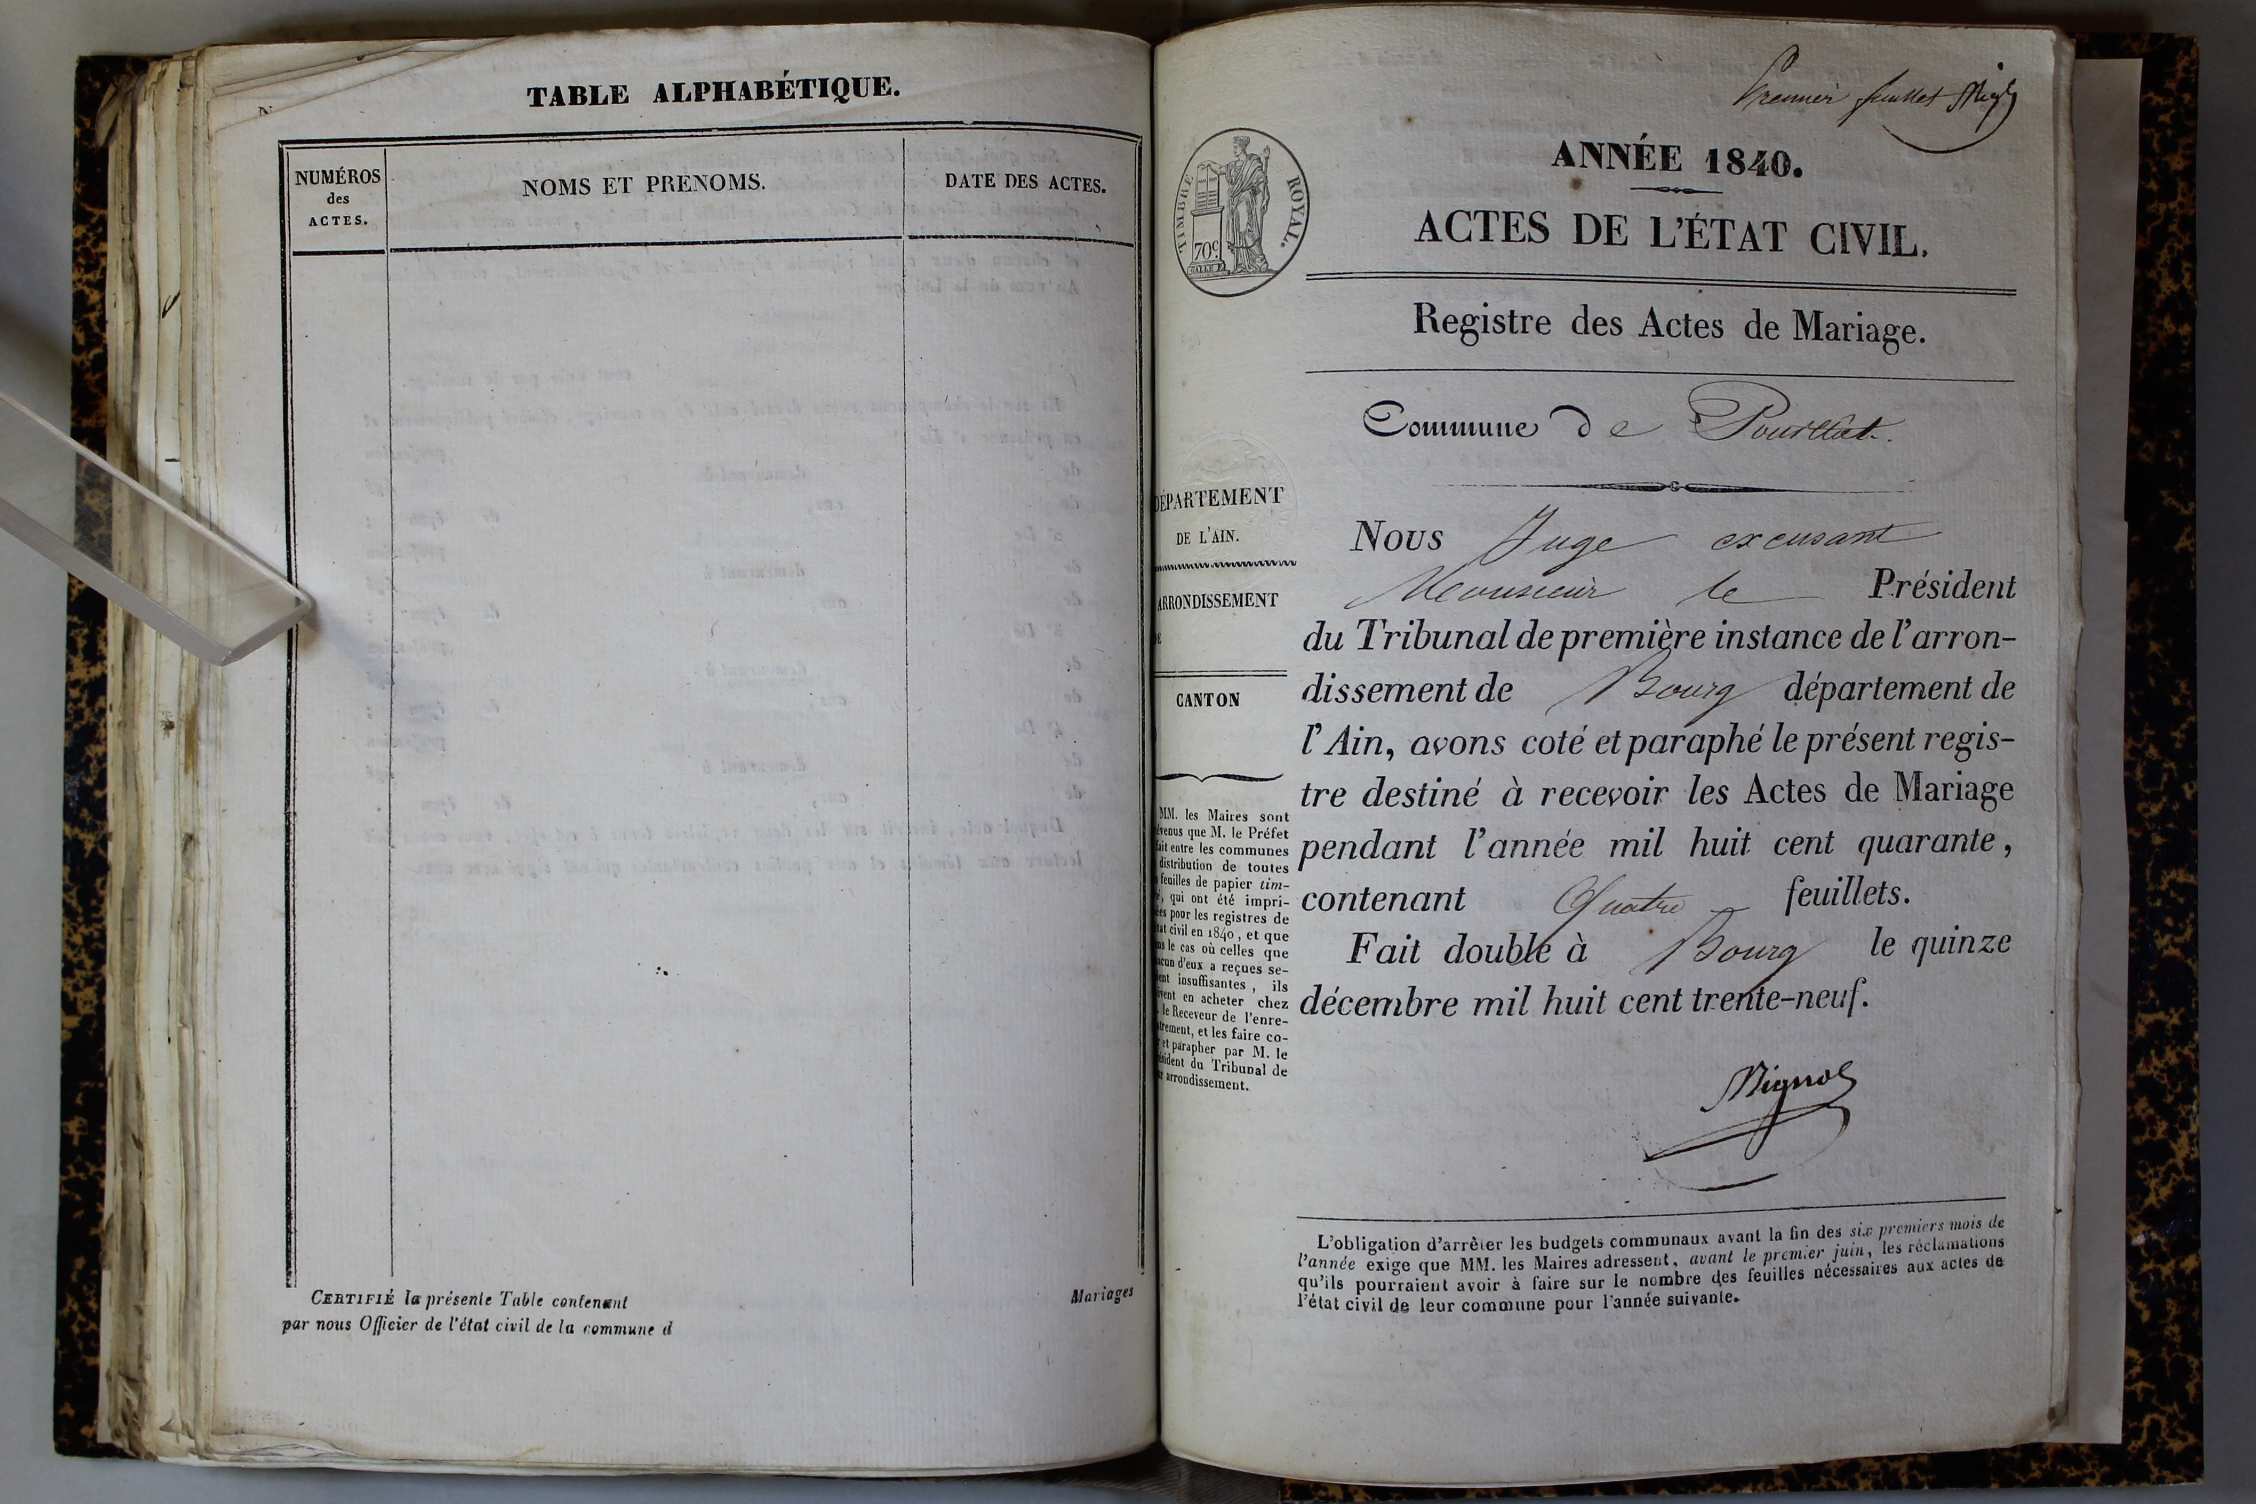 TABLE ALPHABÉTIQUE.
NUMÉROS
des
ACTES.
NOMS ET PRENOMS.
DATE DES ACTES.
CERTIFIÉ la présente Table contenant Mariages
par nous Officier de l'état civil de la commune d
Premier feuillet
ANNÉE 1840.
TIMBRE ROYAL.
70c
ACTES DE L'ÉTAT CIVIL.
Registre des Actes de Mariage.
Commune de Pouillat.
DÉPARTEMENT
DE L'AIN.
ARRONDISSEMENT
CANTON
MM. les Maires sont
que M. le Préfet
entre les communes
distribution de toutes
feuilles de papier tim-
qui ont été impri-
pour les registres de
civil en 1840, et que
le cas où celles que
d'eux a reçues se-
insuffisantes, ils
en acheter chez
le Receveur de l'enre-
et les faire co-
et parapher par M. le
du Tribunal de
arrondissement.
Nous Juge excusant
Monsieur le Président
du Tribunal de première instance de l'arron-
dissement de Bourg département de
l'Ain, avons coté et paraphé le présent regis-
tre destiné à recevoir les Actes de Mariage
pendant l'année mil huit cent quarante,
contenant Quatre feuillets.
Fait double à Bourg le quinze
décembre mil huit cent trente-neuf.
L'obligation d'arrêter les budgets communaux avant la fin des six premiers mois de
l'année exige que MM. les Maires adressent, avant le premier juin, les réclamations
qu'ils pourraient avoir à faire sur le nombre des feuilles nécessaires aux actes de
l'état civil de leur commune pour l'année suivante.